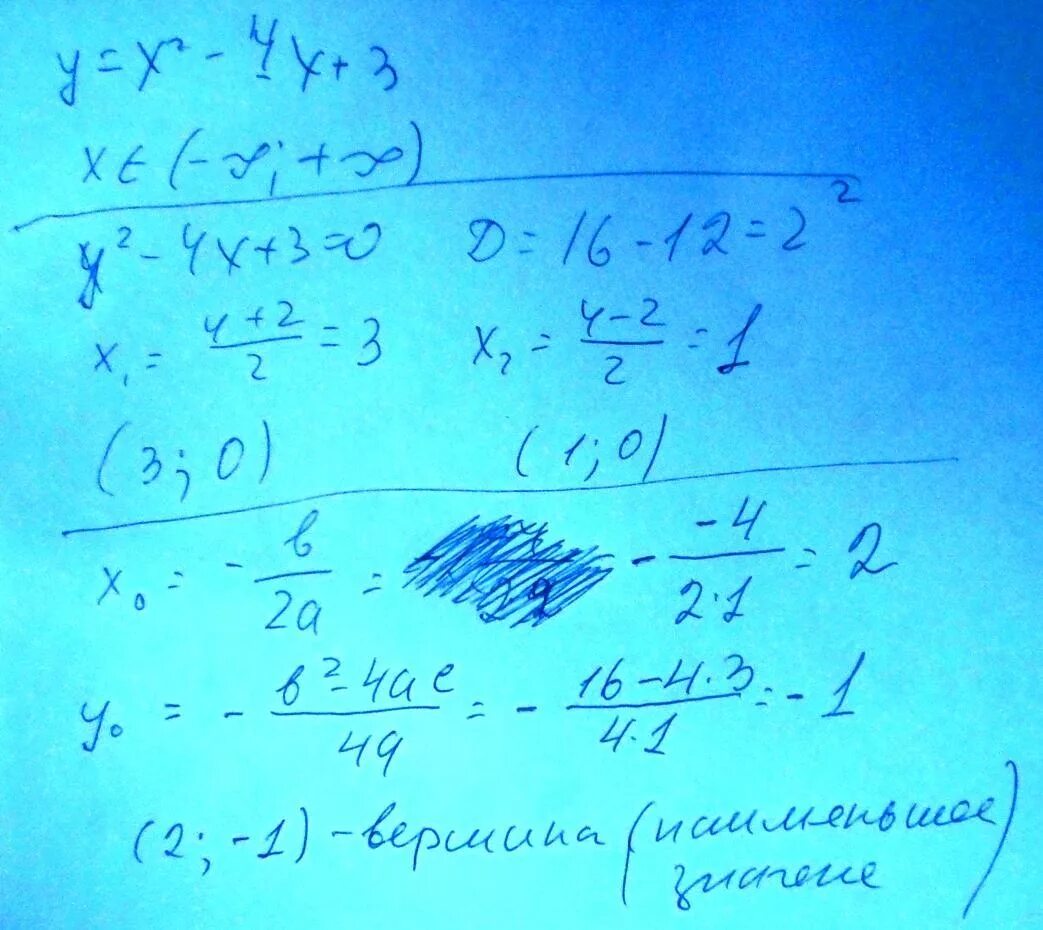 y = x² - 4x + 3
x ∈ (-∞; +∞)
y² - 4x + 3 = 0   D = 16 - 12 = 2²
x₁ = (4+2)/2 = 3   x₂ = (4-2)/2 = 1
(3; 0)   (1; 0)
x₀ = - b/2a = - (-4)/(2·1) = 2
y₀ = - (b² - 4ac)/4a = - (16 - 4·3)/(4·1) = - 1
(2; -1) - вершина (наименьшее
значене)